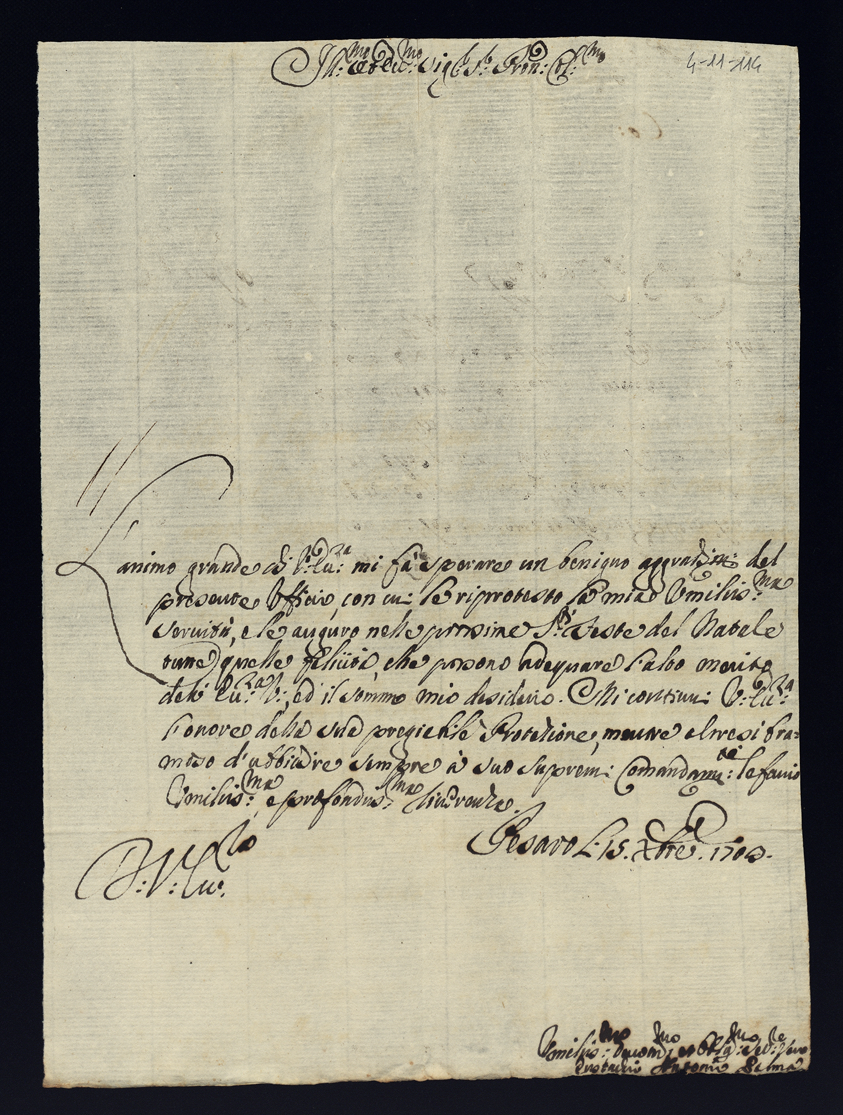 Ill:mo et Ecc:mo Sig:r Sig:r Pron: Col:mo
4-11-114
L'animo grande di V: Ecc:a mi fà sperare un benigno aggradim: del
presente Officio, con cui le riprotesto la mia Umiliss:ma
servitù, e le auguro nelle prossime S:te Feste del Natale
tutte quelle felicità, che possono adequare l'alto merito
dell' Ecc:a V:, ed il sommo mio desiderio. Mi continui V: Ecc:a
l'onore della sua pregiabile Protezione, mentre altresì bra-
moso d'ubbidire sempre à suoi suprem: Comandam:ti le faccio
Umiliss:ma, e profondiss:ma riverenza.
Pesaro L: 15. Xbre. 1703.
D: V: Ecc:
Umiliss:mo Devot:mo et Obblig:mo Ser:re Vero
Antonio